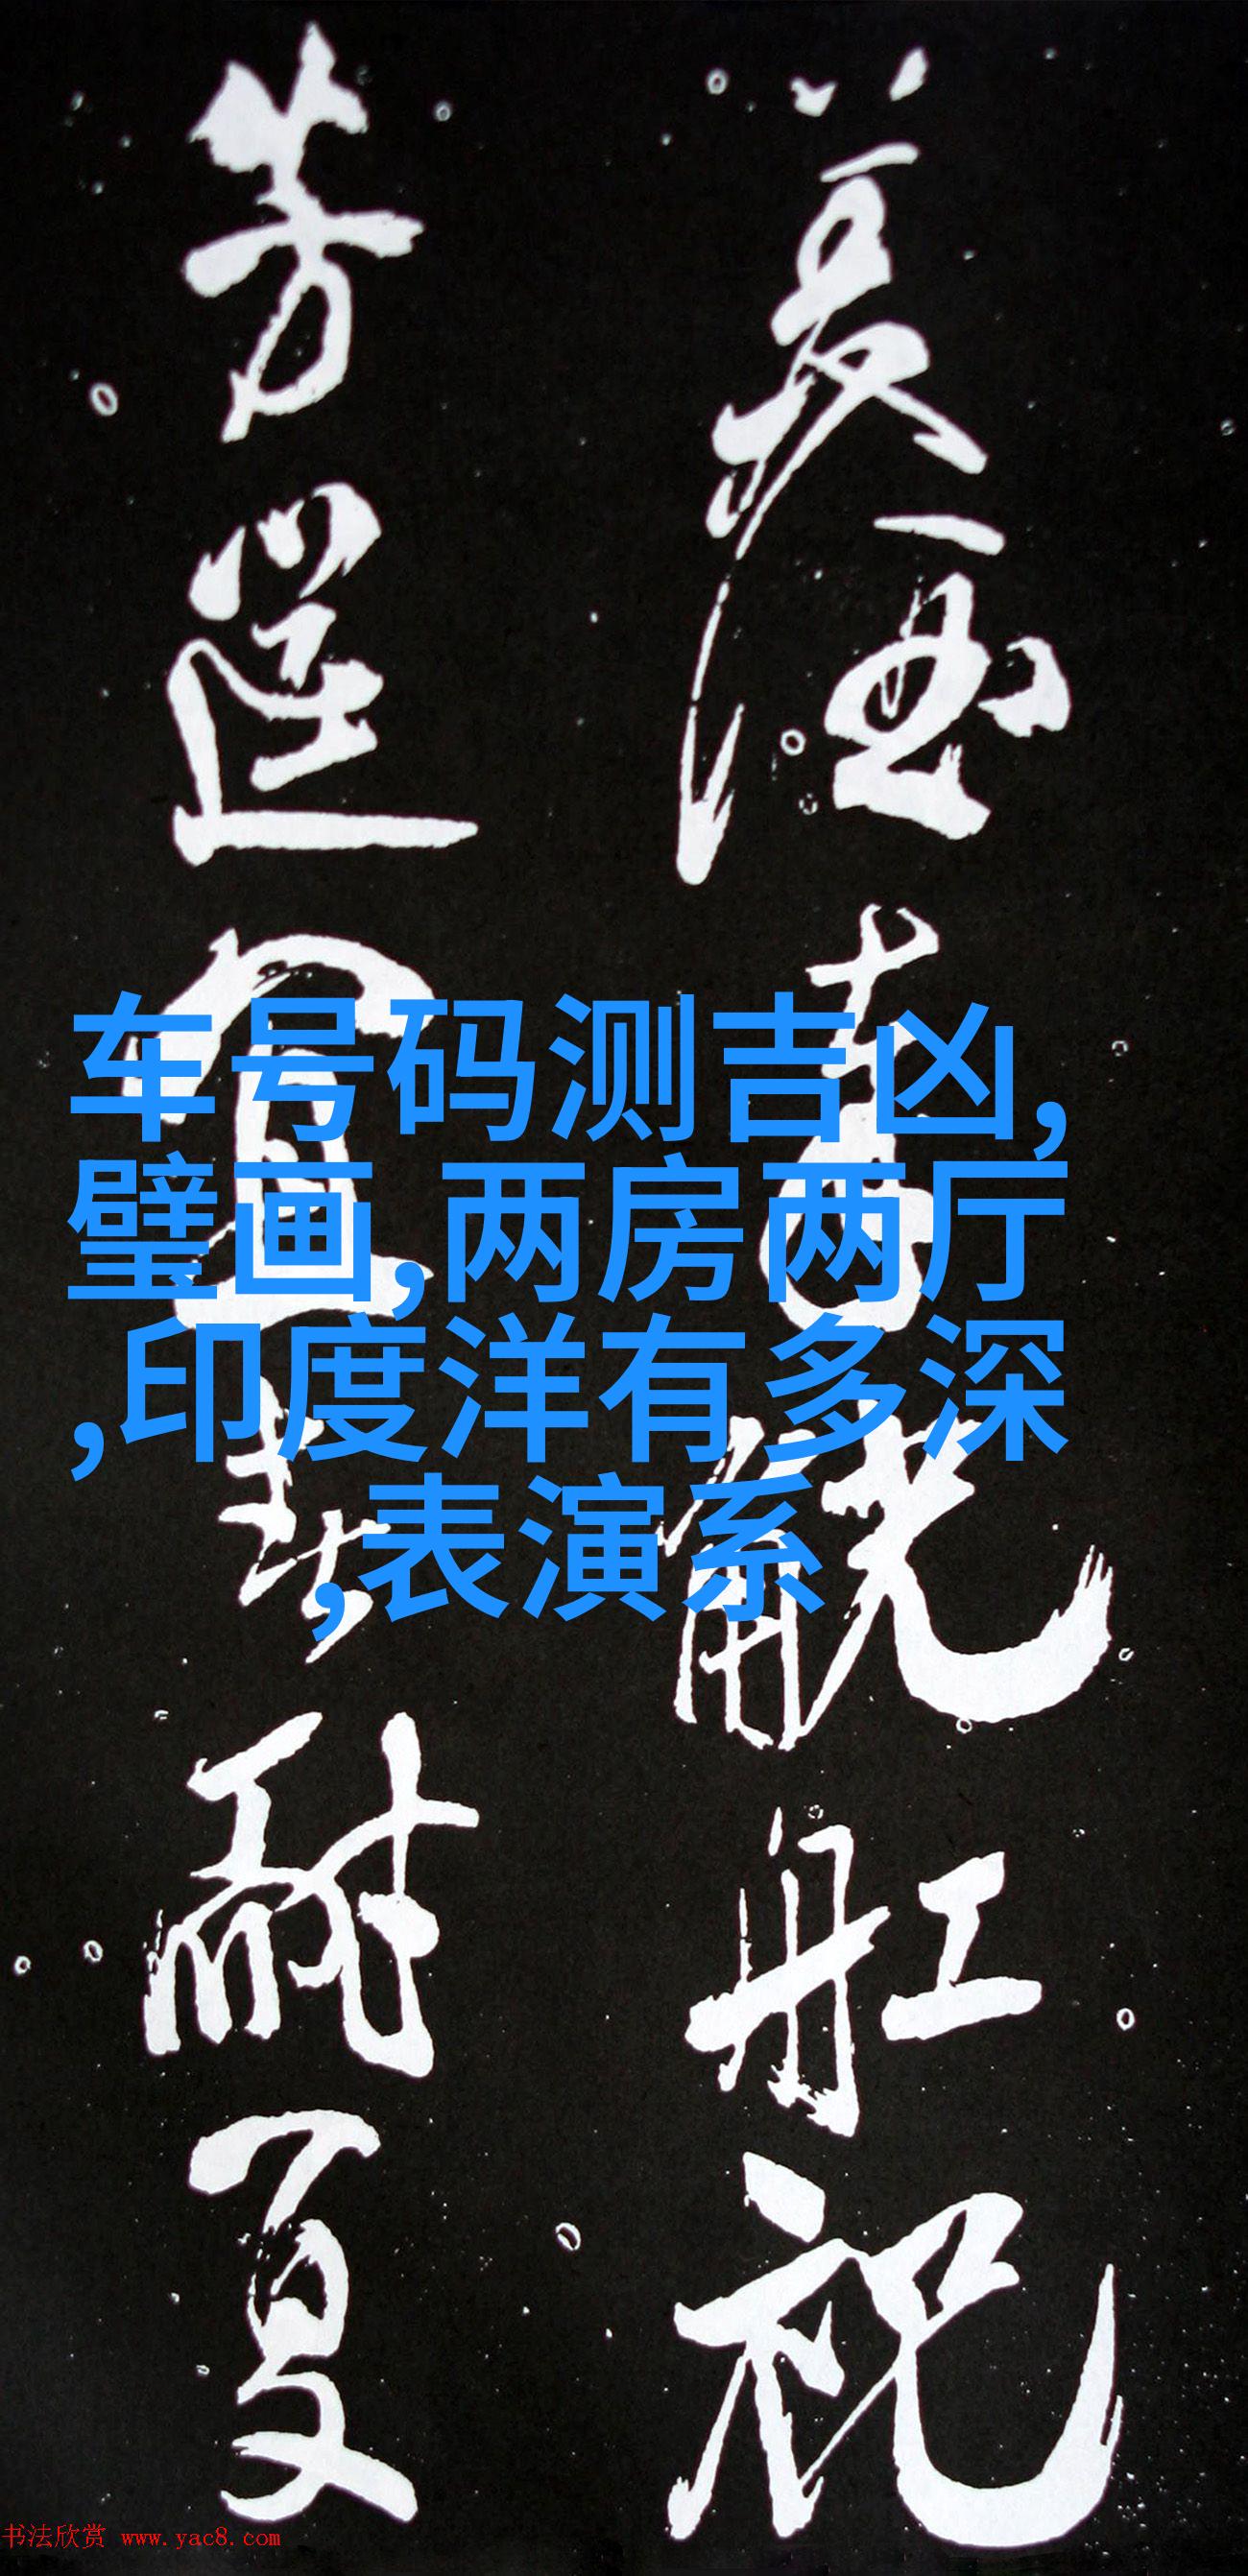 觥舡祝
芳筵宜耐夏
车号码测吉凶,
璧画,两房两厅
,印度洋有多深
,表演系
书法欣赏 www.yac8.com